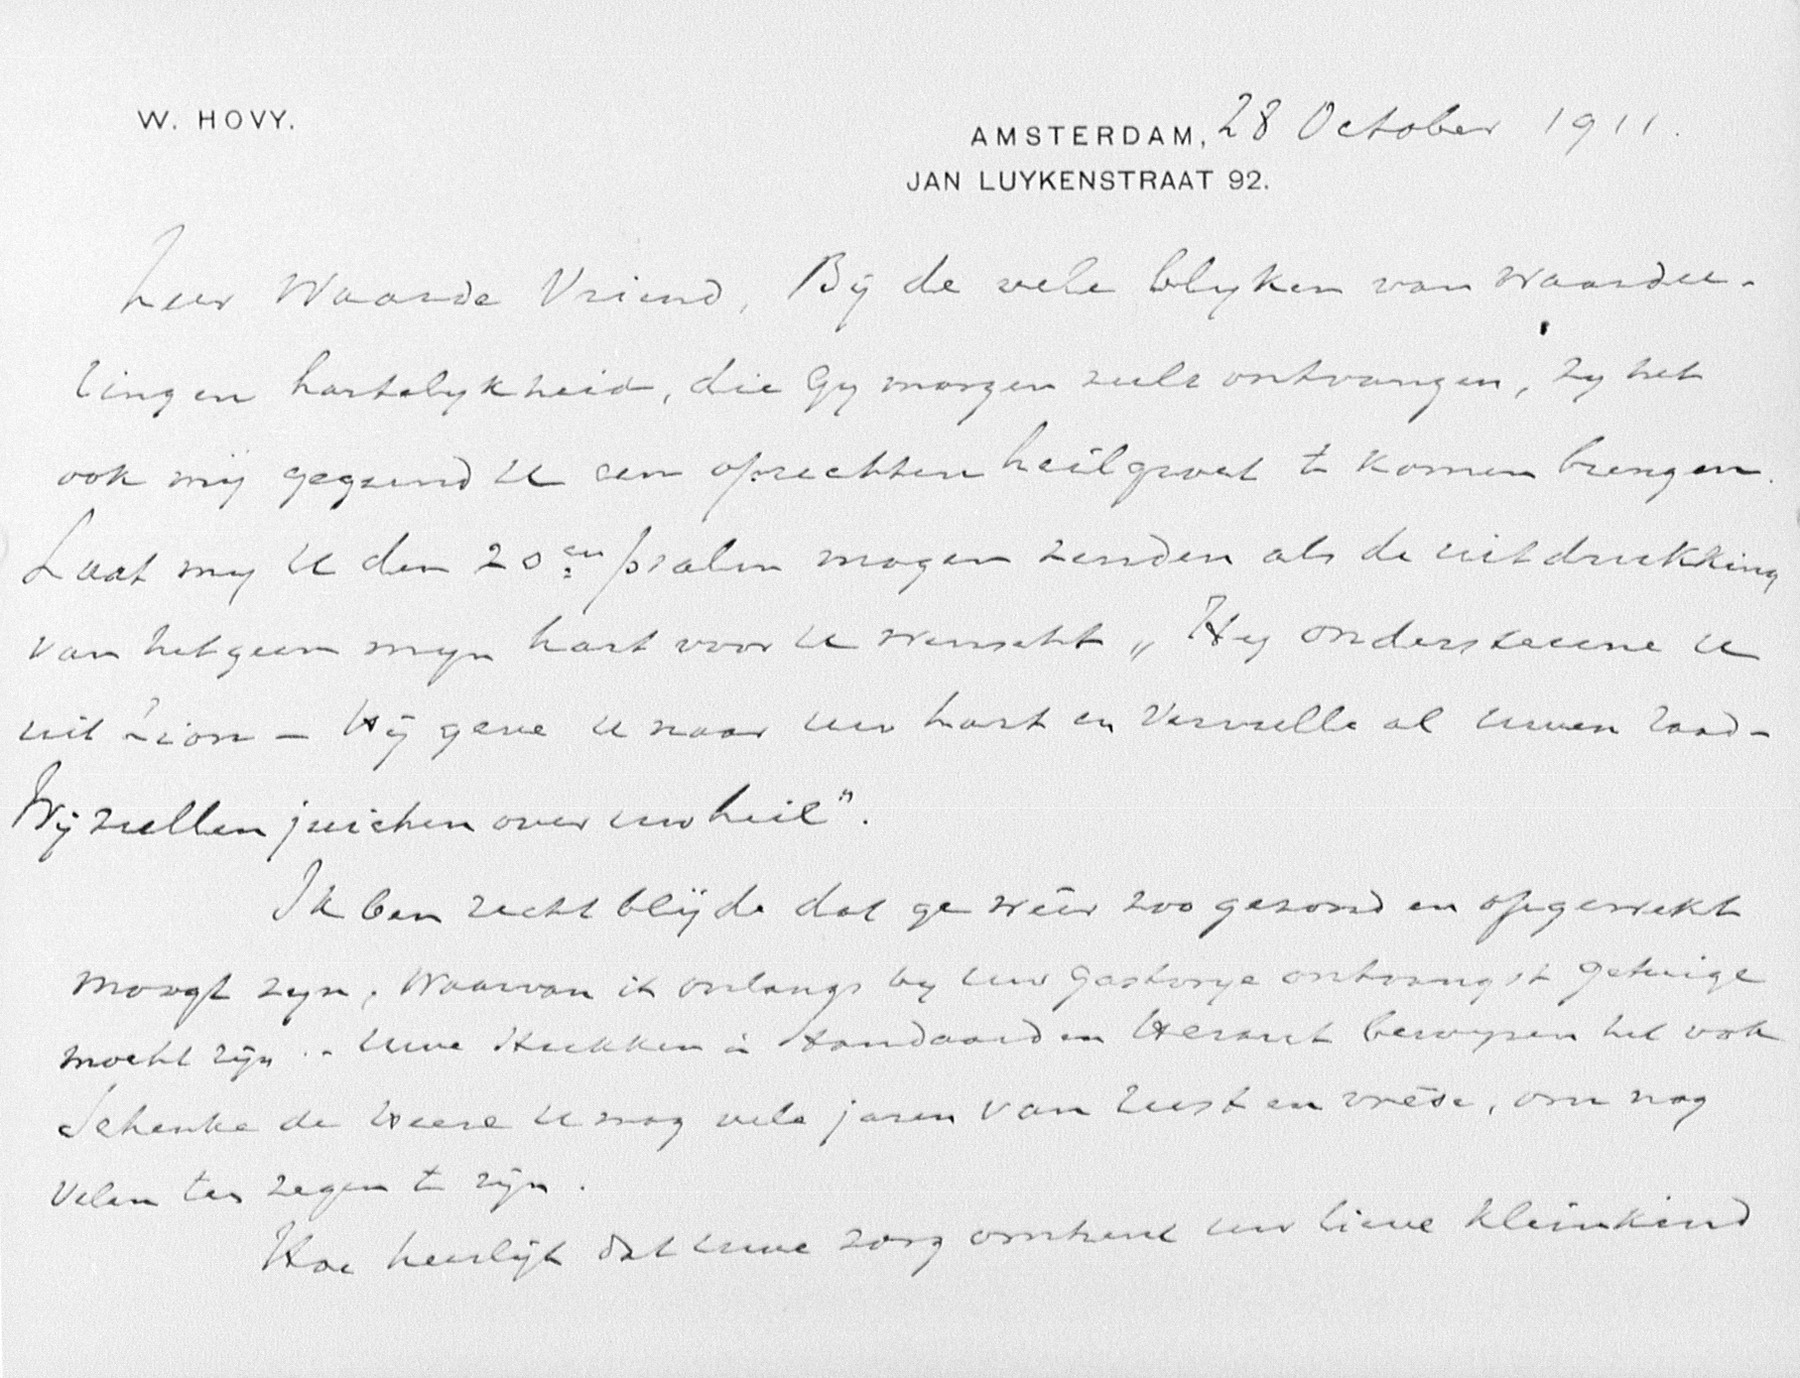 W. HOVY.
AMSTERDAM, 28 October 1911.
JAN LUYKENSTRAAT 92.
Zeer Waarde Vriend, Bij de vele blyken van waardee-
ring en hartelykheid, die Gy morgen zult ontvangen, zy het
ook mij gegund U een oprechten heilgroet te komen brengen.
Laat my U den 20en psalm mogen zenden als de uitdrukking
van hetgeen myn hart voor U wenscht „Hy ondersteune U
uit Zion – Hij geve U naar uw hart en vervulle al uwen raad –
Wij zullen juichen over uw heil".
Ik ben recht blijde dat ge wêer zoo gezond en opgewekt
moogt zyn, waarvan ik onlangs by uw gastvrye ontvangst getuige
mocht zijn. – Uwe stukken in Standaard en Heraut bewyzen het ook
Schenke de Heere U nog vele jaren van rust en vrêde, om nog
velen ten zegen te zijn.
Hoe heerlijk dat uwe zorg omtrent uw lieve kleinkind